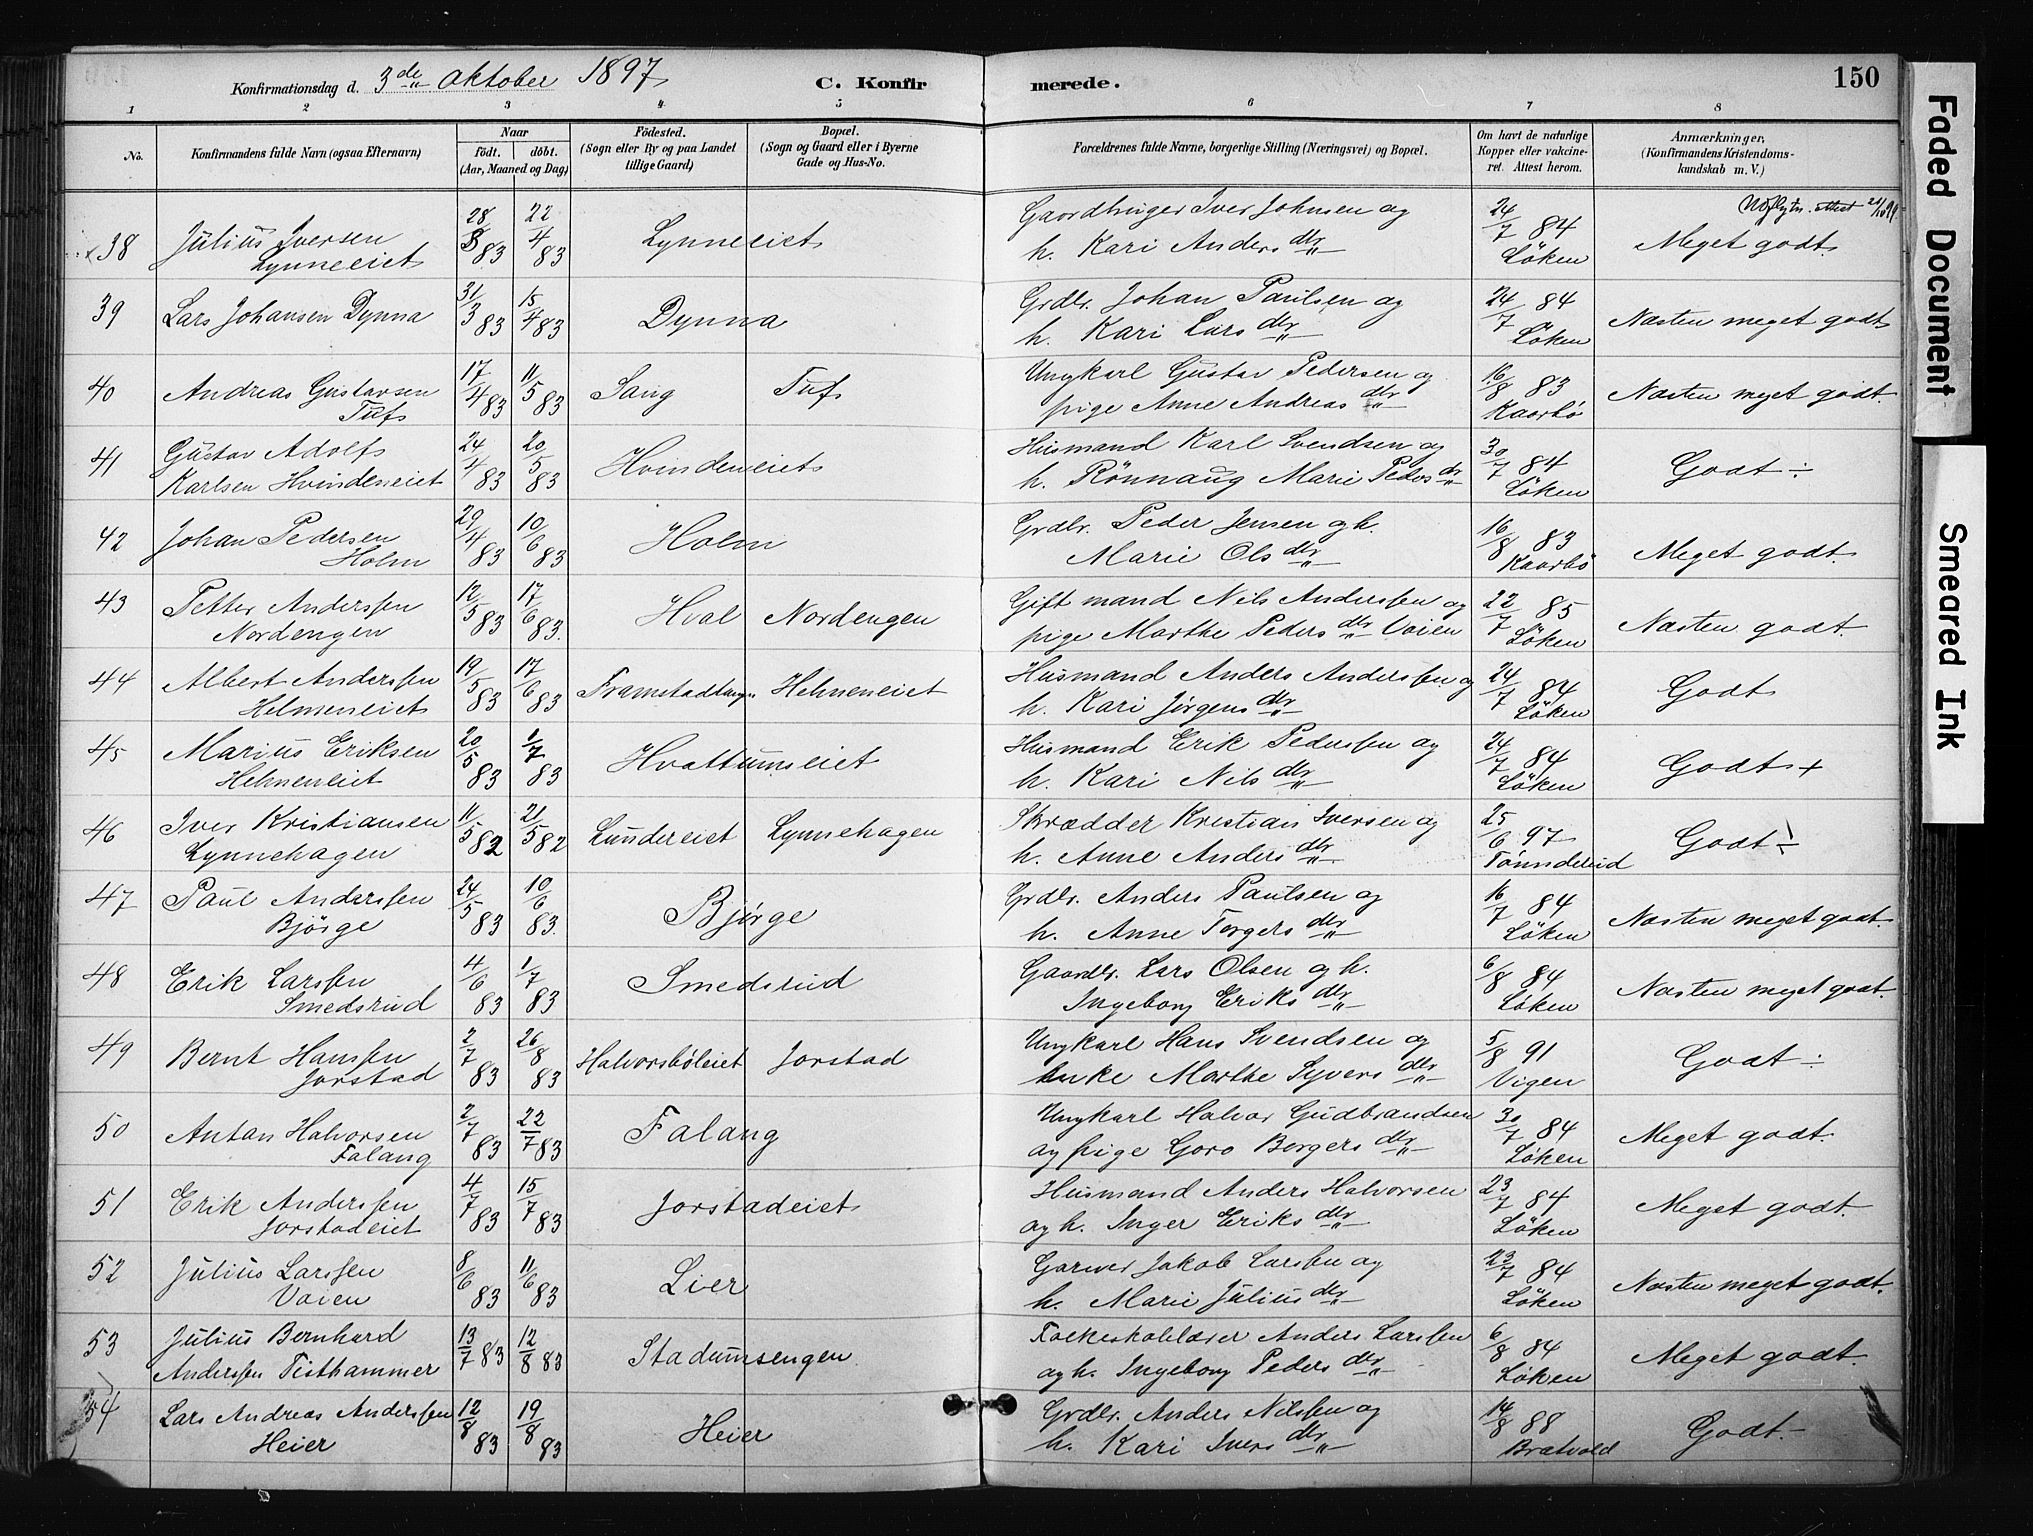 Konfirmationsdag d. 3de oktober 1897 C. Konfir merede. 150
1 2 3 4 5 6 7 8
No. Konfirmandens fulde Navn (ogsaa Efternavn) Naar födt. döbt. (Aar, Maaned og Dag) Födested. (Sogn eller By og paa Landet tillige Gaard) Bopæl. (Sogn og Gaard eller i Byerne Gade og Hus-No. Forældrenes fulde Navne, borgerlige Stilling (Næringsvei) og Bopæl. Om havt de naturlige Kopper eller vakcineret. Attest herom. Anmærkninger, (Konfirmandens Kristendomskundskab m. V.)
38 Julius Iversen 28/3 83 22/4 83 Lynneeiet Gaardbruger Iver Johnsen og 24/7 84
Lynneeiet h. Kari Andersdtr Löken Meget godt
39 Lars Johansen Dynna 31/3 83 15/4 83 Dynna Grdbr. Johan Paulsen og 24/7 84
h. Kari Larsdtr Löken Næsten meget godt
40 Andreas Gustavsen 17/4 83 11/5 83 Sang Tufs Ungkarl Gustav Pedersen og 16/8 83
Tufs pige Anne Andreasdtr Kaarbö Næsten meget godt.
41 Gustav Adolfs 24/4 83 20/5 83 Hvindeneiets Husmand Karl Svendsen og 30/7 84
Karlsen Hvindeneiet h. Rönnaug Marie Pedersdtr Löken Godt ÷
42 Johan Pedersen 29/4 83 10/6 83 Holm Grdbr. Peder Jensen og h. 16/8 83
Holm Marie Olsdtr Kaarbö Meget godt.
43 Petter Anderssen 12/5 83 17/6 83. Hval Nordengen Gift mand Nils Anderssen og 22/7 85
Nordengen pige Marthe Pedersdtr Vaien Löken Næsten godt.
44 Albert Anderssen 19/5 83 17/6 83 Helmeneiet Husmand Anders Anderssen og 24/7 84
Helmeneiet h. Kari Jörgensdtr Löken Godt
45 Marius Eriksen 20/5 83 1/7 83 Hvattumseiet Husmand Erik Pederssen og 24/7 84
Helmeneiet h. Kari Nilsdtr Löken Godt +
46 Iver Kristiansen 11/5 82 21/5 82 Lundereiet Lynnehagen Skrædder Kristian Iversen og 25/6 97
Lynnehagen h. Anne Andersdtr Tönnderud Godt ÷
47 Paul Anderssen 24/5 83 10/6 83. Björge Grdbr. Anders Paulsen og 16/7 84
Björge h. Anne Torgersdtr Löken Næsten meget godt.
48 Erik Larssen 4/6 83 1/7 83 Smedsrud Gaardbr. Lars Olsen og h. 6/8 84
Smedsrud Ingeborg Eriksdtr Löken Næsten meget godt.
49 Bernt Hanssen 2/7 83 26/8 83 Halvorsböleiet Jorstad Ungkarl Hans Svendsen og 5/8 91
Jorstad enke Marthe Syversdtr Vigen Godt ÷
50 Anton Halvorsen 2/7 83 22/7 83 Falang Ungkarl Halvor Gudbrandsen 30/7 84
Falang og pige Goro Borgersdtr Löken Meget godt.
51 Erik Anderssen 4/7 83 15/7 83 Jorstadeiet Husmand Anders Halvorsen 23/7 84
Jorstadeiet og h. Inger Eriksdtr Löken Meget godt.
52 Julius Larssen 8/6 83 11/6 83 Lier Garver Jakob Larssen og 23/7 84
Vaien h. Marie Juliusdtr Löken Næsten meget godt.
53 Julius Bernhard 13/7 83 12/8 83 Stadumsengen Folkeskolelærer Anders Larssen 6/8 84
Anderssen Tisthammer og h. Ingeborg Pedersdtr Löken Meget godt.
54 Lars Andreas Anderssen 12/8 83 19/8 83 Heier Grdbr. Anders Nilssen og 14/8 88
Heier h. Kari Iversdtr Bratvold Godt.-
Faded Document
Smeared Ink